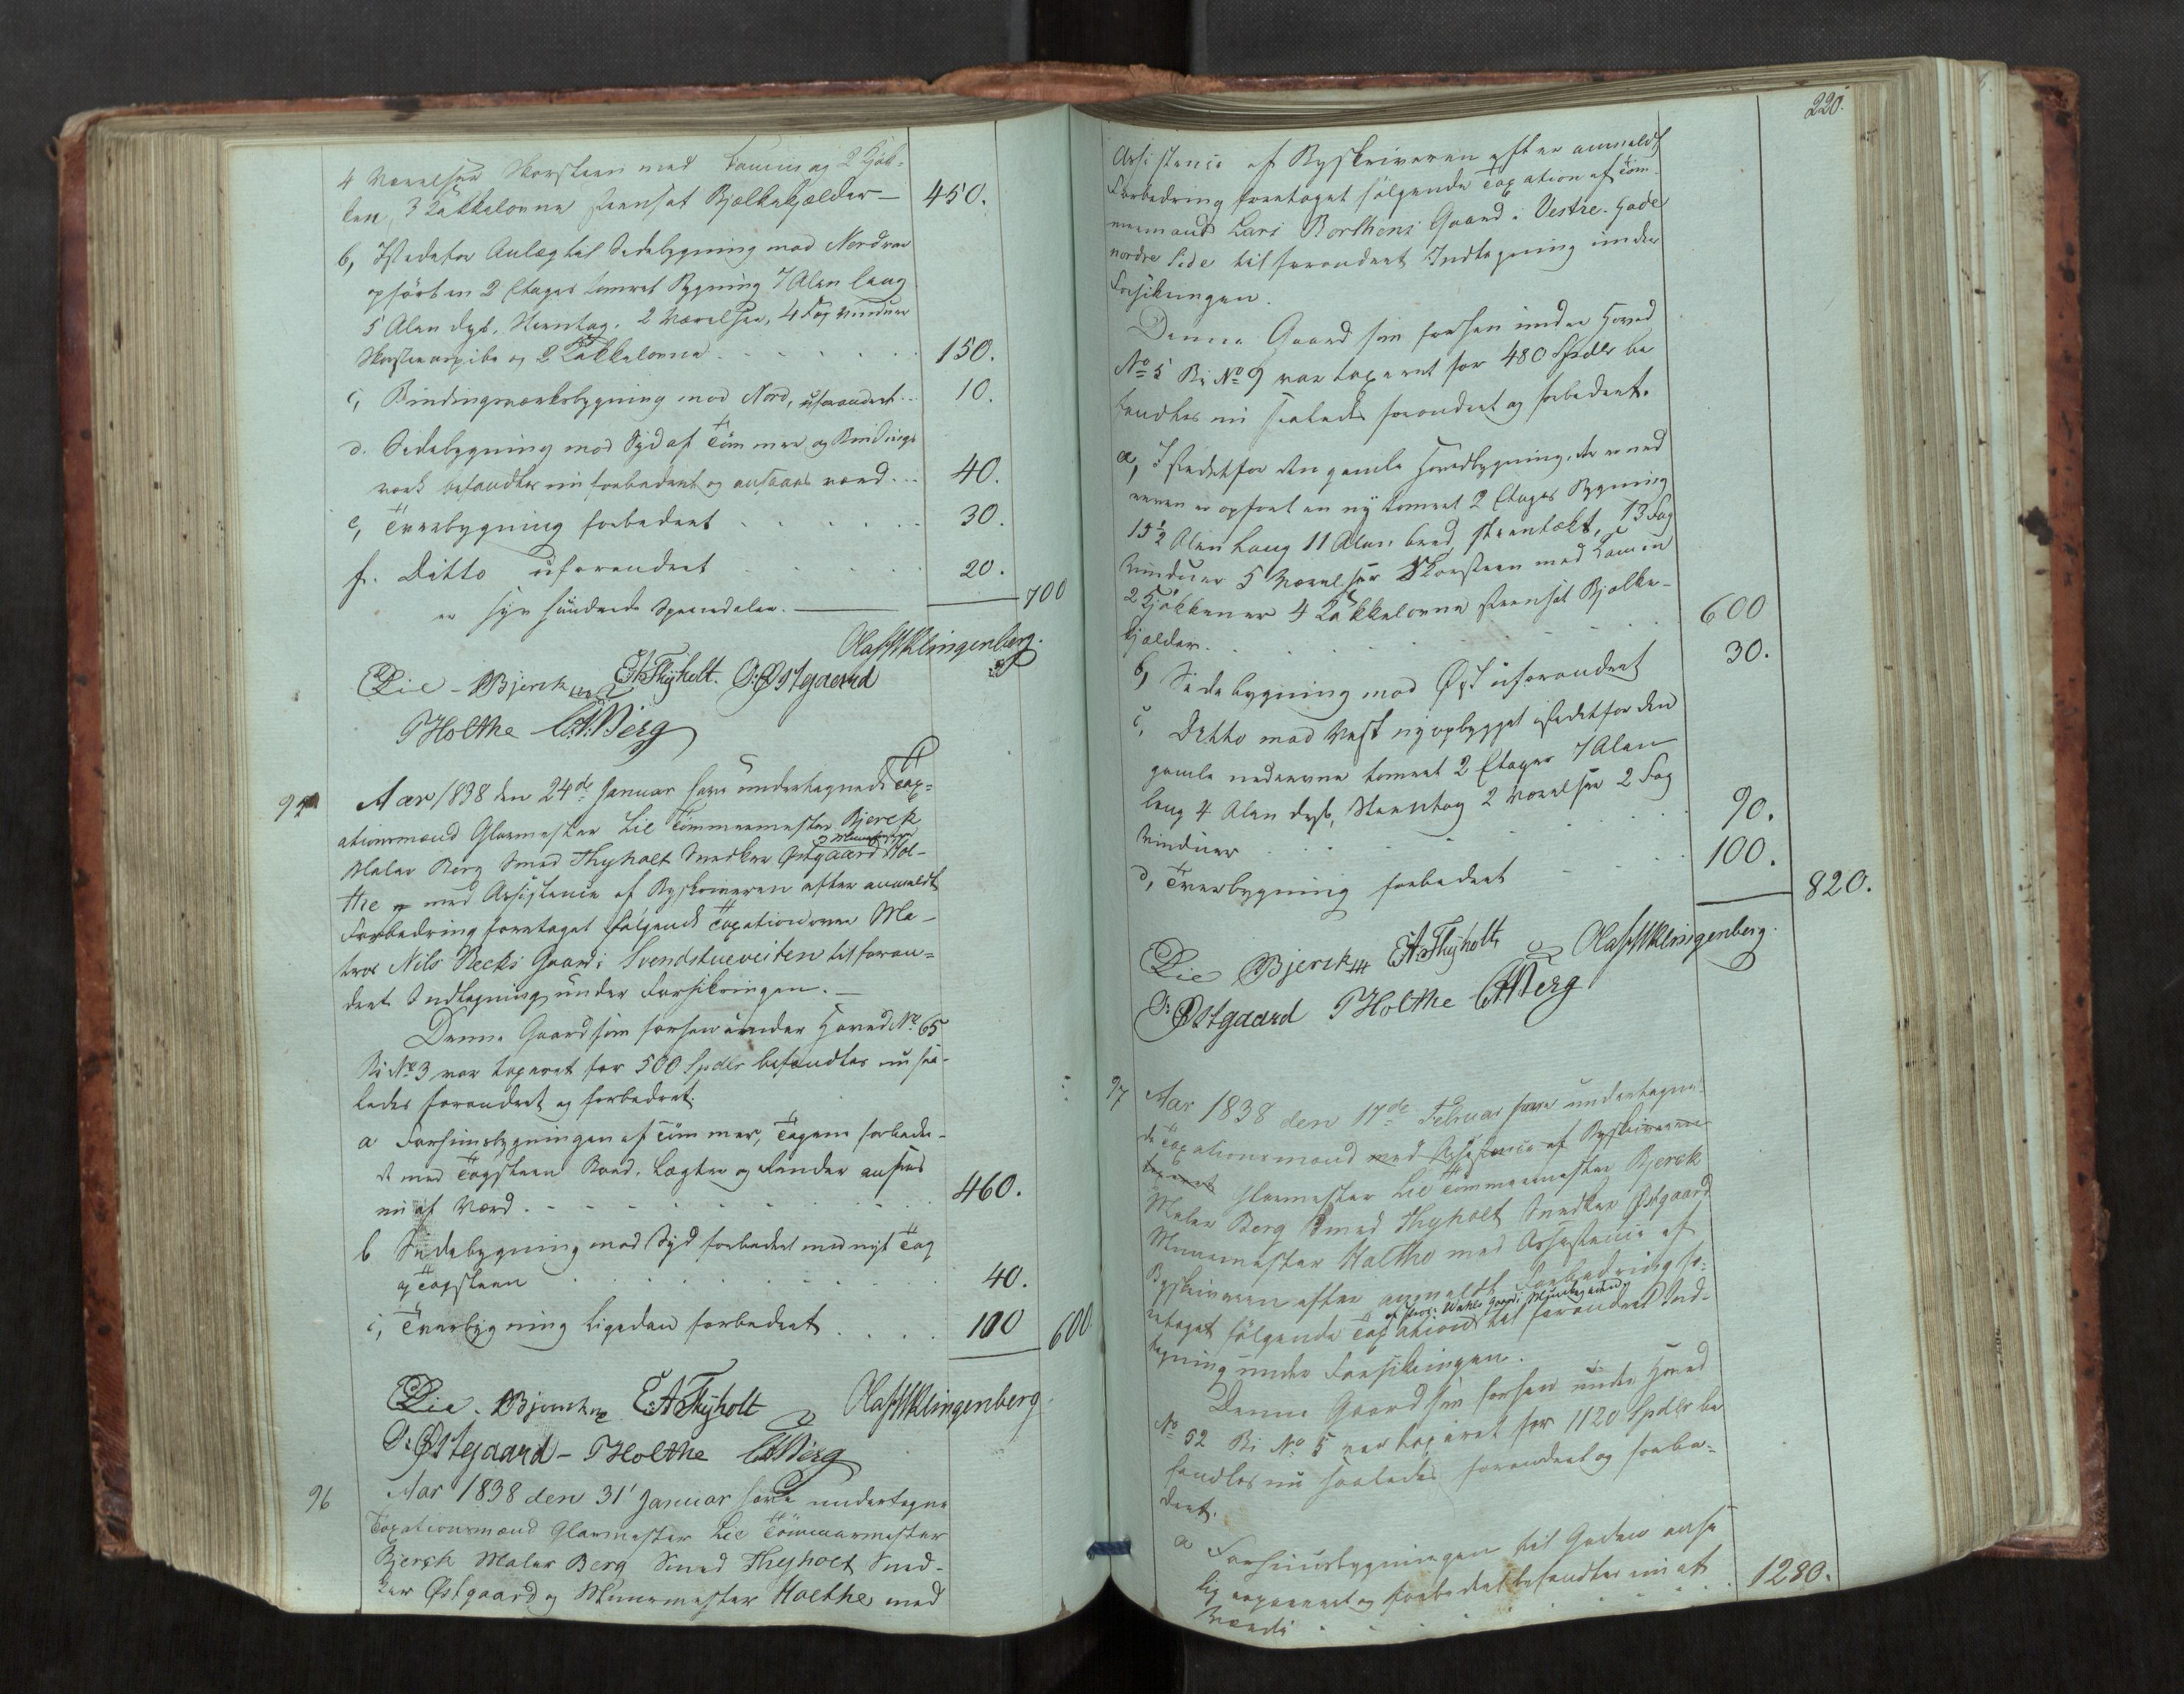 4 Værelser Skorsteen med Camin og 2 Kjök-
ken, 3 Kakkelovne steensat Bjelkekjelder — 450.
b, Istedetfor Anlæg til Sidebygning mod Nord
opfört en 2 Etages tomret Bygning 7 Alen lang
5 Alen dyb, Steentag, 2 Værelser, 4 Fag Vinduer
Skorsteenspibe og 2 Kakkelovne 150.
c, Bindingsværksbygning mod Nord, uforandret 10.
d. Sidebygning mod Syd af Tömmer og Bindings
værk befandtes nu forbedret og ansaaes værd 40.
e, Tverbygning forbedret 30.
f. Ditto uforandret 20.
er syv hundrede Speciedaler. 700
Olaf Klingenberg
Lie - Bjerck EA Thyholt. O: Østgaard
P Holthe Berg
Aar 1838 den 24de Januar have undertegnede Tax-
ationsmænd Glarmester Lie Tömmermester Bjerck
Murmester
Maler Berg Smed Thyholt Snedker Østgaard Hol-
the med Assistence af Byskriveren efter anmeldt
Forbedring foretaget fölgende Taxation over Ma-
tros Nils Becks Gaard i Svendstueveiten til foran-
dret Indtegning under Forsikringen. —
Denne Gaard som forhen under Hoved No 65
Bi No 3 var taxeret for 500 Spdlr befandtes nu saa-
ledes forandret og forbedret.
a Forhuusbygningen af Tömmer, Tagene forbedre-
t med Tagsteen Bord, Lægter og Render ansees
nu at Værd 460.
b Sidebygning mod Syd forbedret med nyt Tag
og Tagsteen 40.
c, Tverbygning ligedan forbedret 100 600
Lie. Bjerck EA Thyholt Olaf Klingenberg.
O: Østgaard - P Holthe Berg
96 Aar 1838 den 31' Januar have undertegne
Taxationsmænd Glarmester Lie Tömmermester
Bjerck Maler Berg Smed Thyholt Sned-
ker Østgaard og Murmester Holthe med
220.
Assistence af Byskriveren efter anmeldt
Forbedring foretaget fölgende Taxation af Töm-
mermand Lars Berthens Gaard i Vestre-Gade
nordre Side til forandret Indtegning under
Forsikringen.
Denne Gaard som forhen under Hoved
No 5 Bi No 9 var taxeret for 480 Spdlr be
fandtes nu saaledes forandret og forbedret.
a, Istedetfor den gamle Hovedbygning, der er ned
reven er opfört en ny tomret 2 Etages Bygning
15½ Alen lang 11 Alen bred, steentækt, 13 Fag
Vinduer 5 Værelser Skorsteen med Camin
2 Kjökkener 4 Kakkelovne steensat Bjelke-
kjelder. 600
b, Sidebygning mod Øst uforandret 30.
c, Ditto mod Vest nyopbygget istedetfor den
gamle nedrevne tomret 2 Etager 7 Alen
lang 4 Alen dyb, Steentag 2 Værelser 2 Fag
Vinduer 90.
d, Tverbygning forbedret 100. 820.
Lie Bjerck EA Thyholt Olaf Klingenberg.
O: Østgaard P Holthe Berg
97 Aar 1838 den 17de Februar have undertegne-
de Taxationsmænd med Assistence af Byskriveren
Glarmester Lie Tömmermester Bjerck
Maler Berg Smed Thyholt Snedker Østgaard
Murmester Holthe med Assistence af
Byskriveren efter anmeldt Forbedring fo-
Wahls Gaard i Munkegaden
retaget fölgende Taxation til forandret Ind-
tegning under Forsikringen.
Denne Gaard som forhen under Hoved
No 52 Bi No 5 var taxeret for 1120 Spdlr be
fandtes nu saaledes forandret og forbe-
dret.
a Forhuusbygningen til Gaden anse
lig repareret og forbedret befandtes nu at
Værdi 1280.